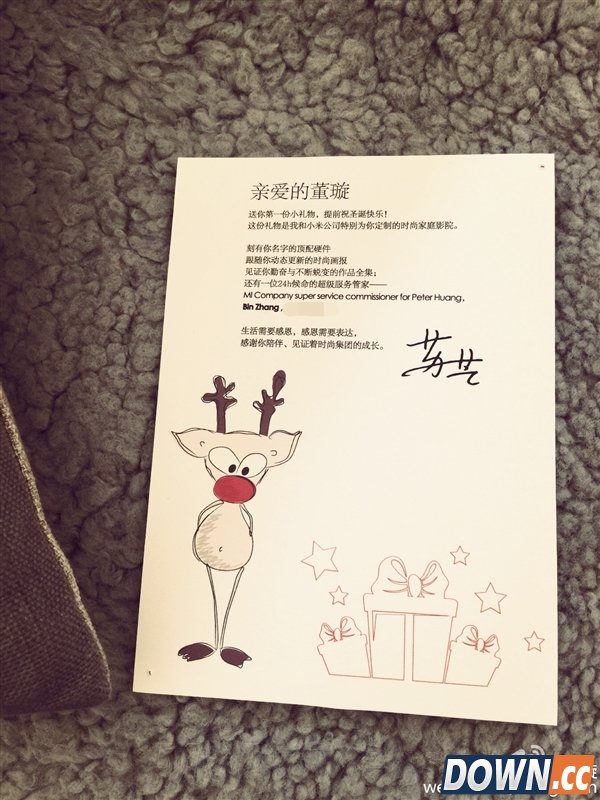 亲爱的董璇
送你第一份小礼物，提前祝圣诞快乐！
这份礼物是我和小米公司特别为你定制的时尚家庭影院。
刻有你名字的顶配硬件
跟随你动态更新的时尚画报
见证你勤奋与不断蜕变的作品全集；
还有一位24h候命的超级服务管家——
MI Company super service commissioner for Peter Huang,
Bin Zhang ,
生活需要感恩，感恩需要表达，
感谢你陪伴、见证着时尚集团的成长。
苏芒
DOWN.cc